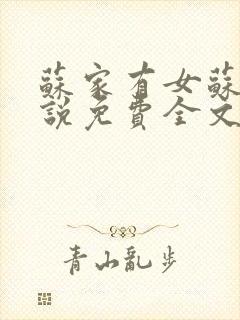 蘇家有女蘇
說免費全文
青山亂步